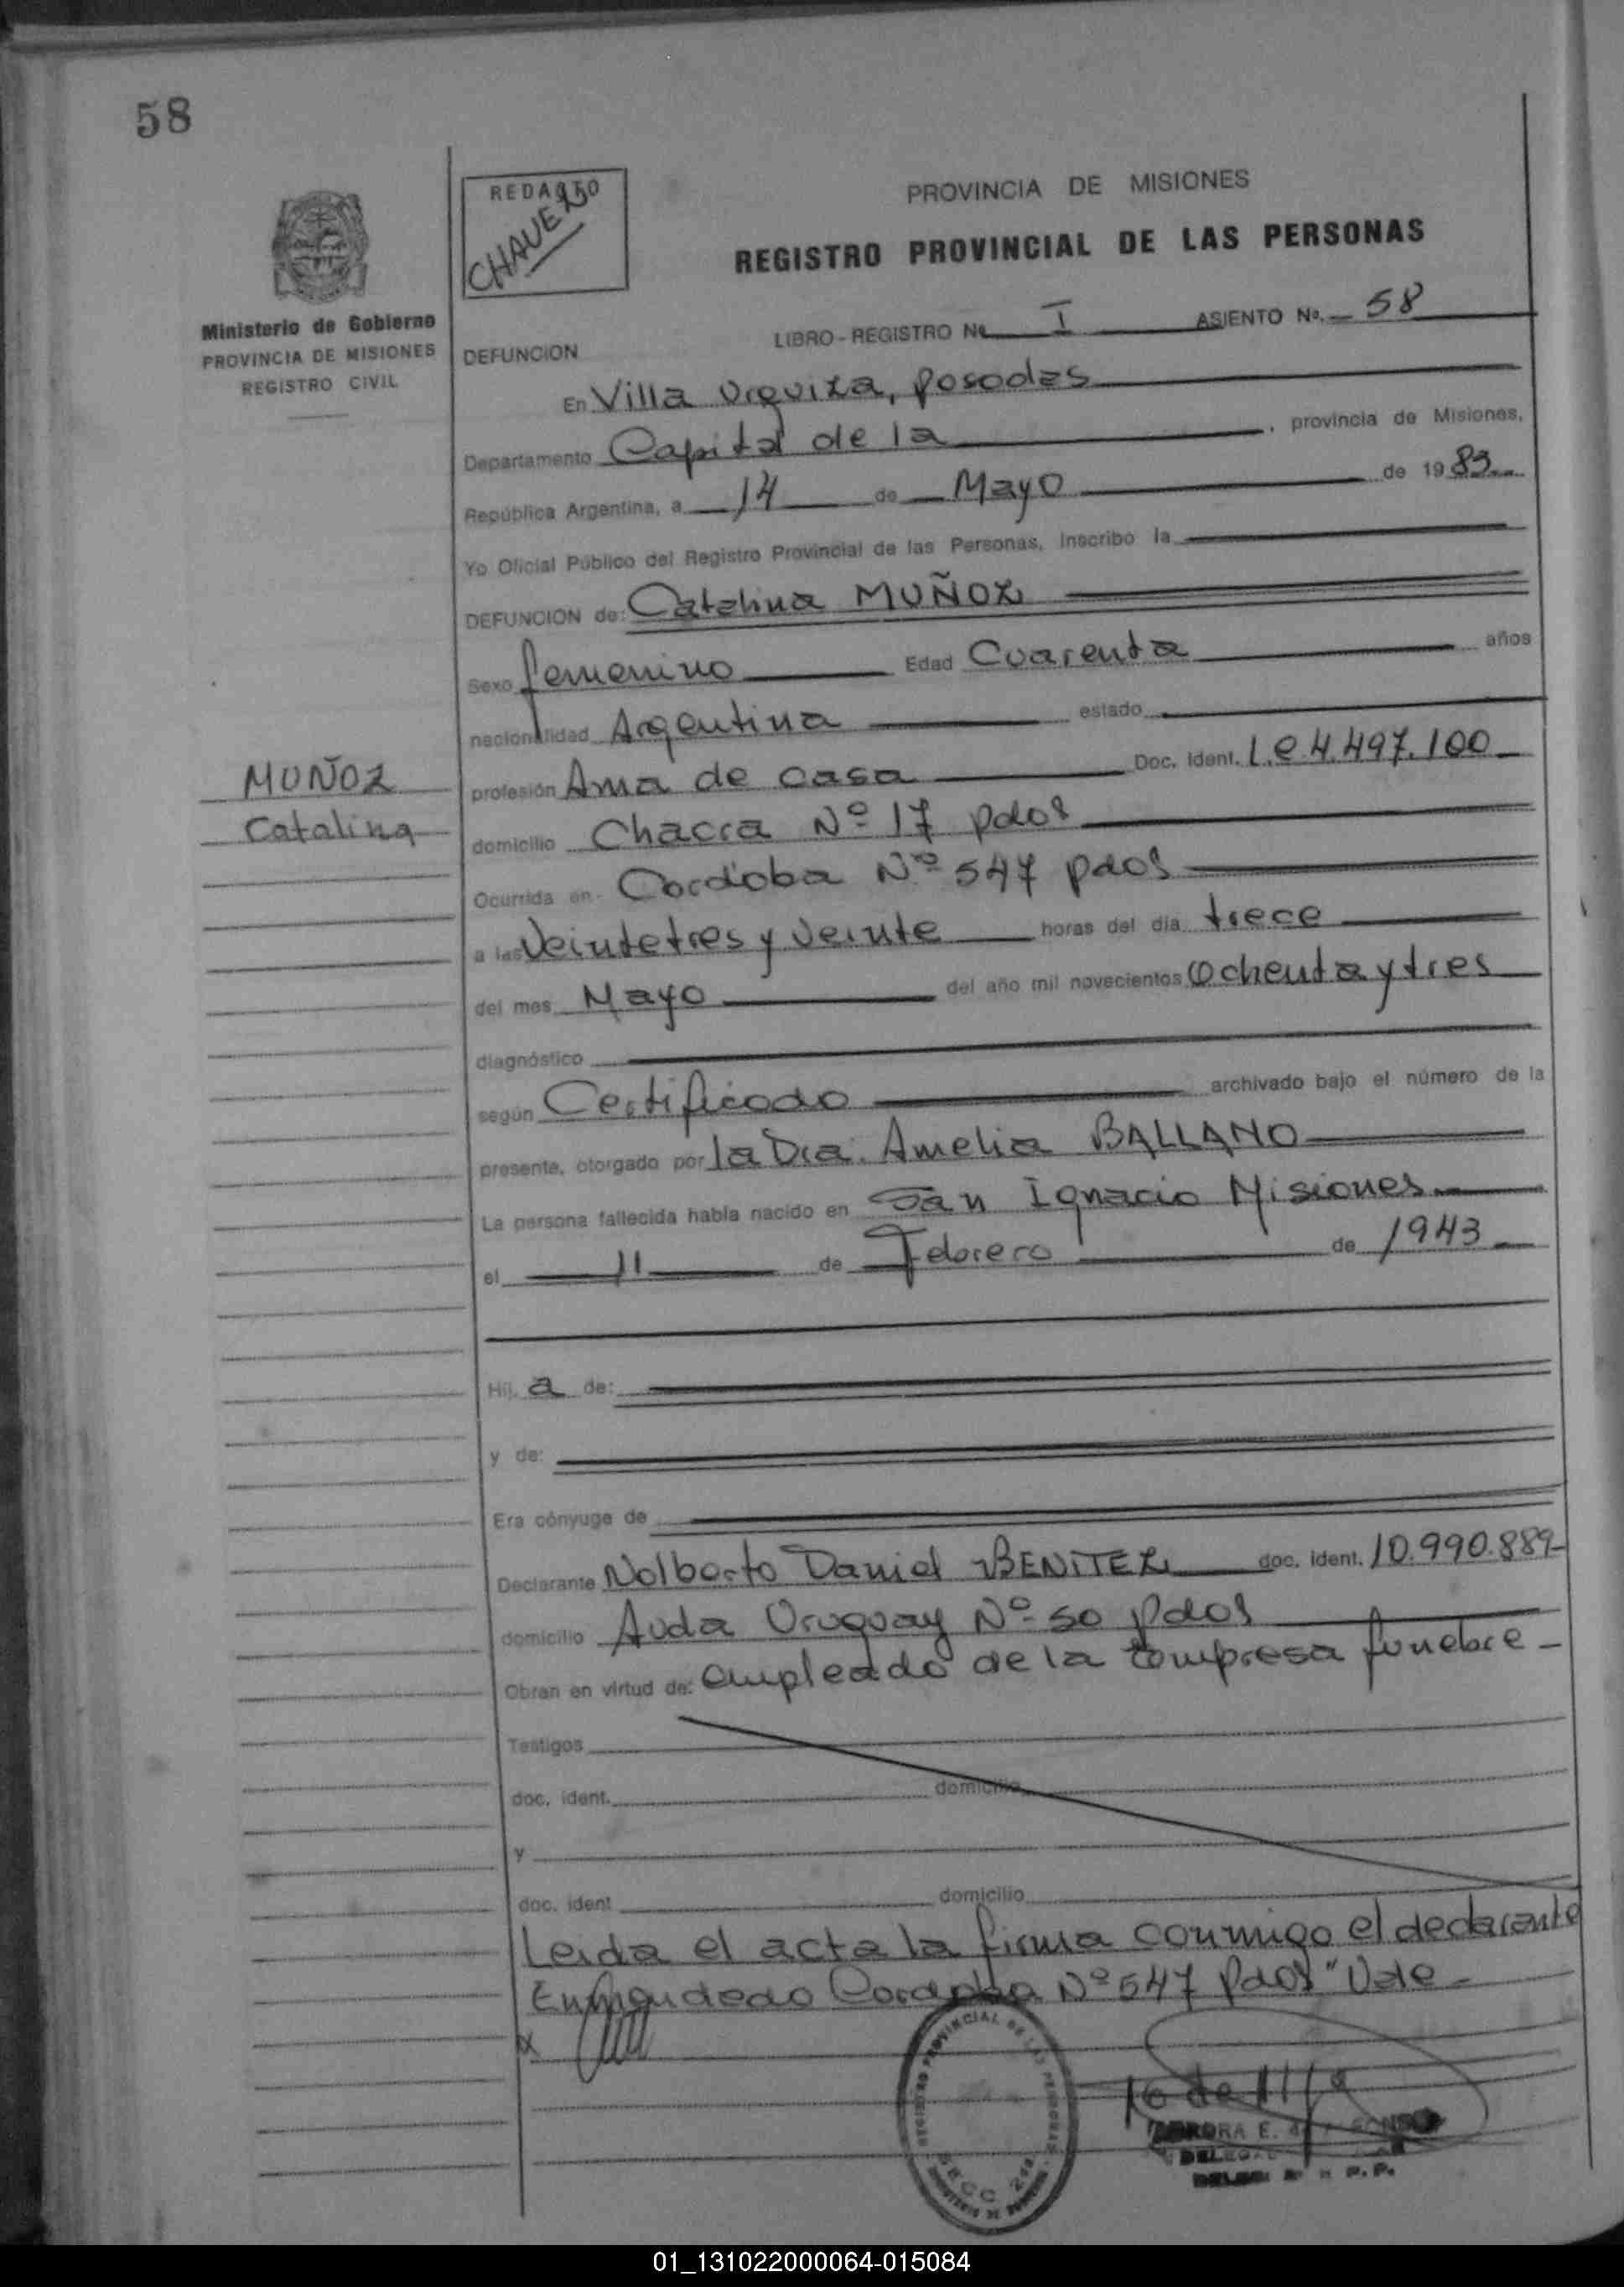 58
REDACTO
CHAVERO
PROVINCIA DE MISIONES
REGISTRO PROVINCIAL DE LAS PERSONAS
Ministerio de Gobierno
PROVINCIA DE MISIONES
REGISTRO CIVIL
LIBRO - REGISTRO No I ASIENTO No. 58
DEFUNCION
En Villa Urquiza, Posadas
Departamento Capital de la , provincia de Misiones,
República Argentina, a 14 de Mayo de 1983
Yo Oficial Público del Registro Provincial de las Personas, inscribo la
DEFUNCION de: Catalina MUÑOZ
Sexo femenino Edad Cuarenta años
nacionalidad Argentina estado
MUÑOZ
Catalina
profesión Ama de casa Doc. Ident. L.C 4.497.100
domicilio Chacra Nº 17 Pdas
Ocurrida en Cordoba Nº 547 pdas
a las Veintetres y veinte horas del día trece
del mes Mayo del año mil novecientos Ochenta y tres
diagnóstico
según Certificado archivado bajo el número de la
presente, otorgado por la Dra. Amelia BALLANO
La persona fallecida había nacido en San Ignacio Misiones
el 11 de Febrero de 1943
Hij a de:
y de:
Era cónyuge de
Declarante Nolberto Daniel BENITEZ doc. ident. 10.990.889
domicilio Avda Uruguay Nº 50 Pdas
Obran en virtud de: empleado de la Empresa funebre
Testigos
doc. ident. domicilio
y
doc. ident domicilio
Leida el acta la firma conmigo el declarante
Enmendado Cordoba Nº 547 Pdas" Vale
REGISTRO PROVINCIAL DE LAS PERSONAS
SECC
E.
01_131022000064-015084